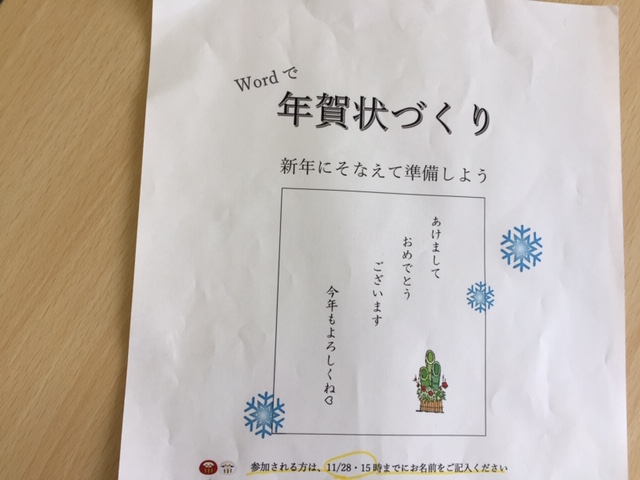 Wordで
年賀状づくり
新年にそなえて準備しよう
あけまして
おめでとう
ございます
今年もよろしくね♡
参加される方は、11/28・15時までにお名前をご記入ください